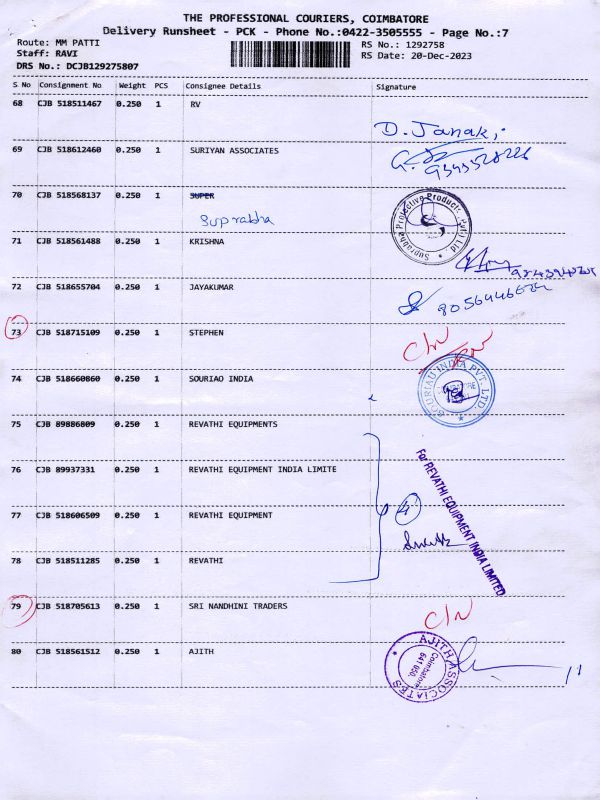 THE PROFESSIONAL COURIERS, COIMBATORE
Delivery Runsheet - PCK - Phone No.:0422-3505555 - Page No.:7
Route: MM PATTI RS No.: 1292758
Staff: RAVI RS Date: 20-Dec-2023
DRS No.: DCJB129275807
S No Consignment No Weight PCS Consignee Details Signature
68 CJB 518511467 0.250 1 RV
D. Janaki
69 CJB 518612460 0.250 1 SURIYAN ASSOCIATES
70 CJB 518568137 0.250 1 SUPER
Suprabha
Suprabha Protective Products (Pvt) Ltd
71 CJB 518561488 0.250 1 KRISHNA
72 CJB 518655704 0.250 1 JAYAKUMAR
73 CJB 518715109 0.250 1 STEPHEN
C/N
74 CJB 518660860 0.250 1 SOURIAO INDIA
SOURIAU INDIA PVT. LTD
75 CJB 89886809 0.250 1 REVATHI EQUIPMENTS
76 CJB 89937331 0.250 1 REVATHI EQUIPMENT INDIA LIMITE
For REVATHI EQUIPMENT INDIA LIMITED
77 CJB 518606509 0.250 1 REVATHI EQUIPMENT
4
78 CJB 518511285 0.250 1 REVATHI
79 CJB 518705613 0.250 1 SRI NANDHINI TRADERS
C/N
80 CJB 518561512 0.250 1 AJITH
AJITH ASSOCIATES
Coimbatore
641 050.